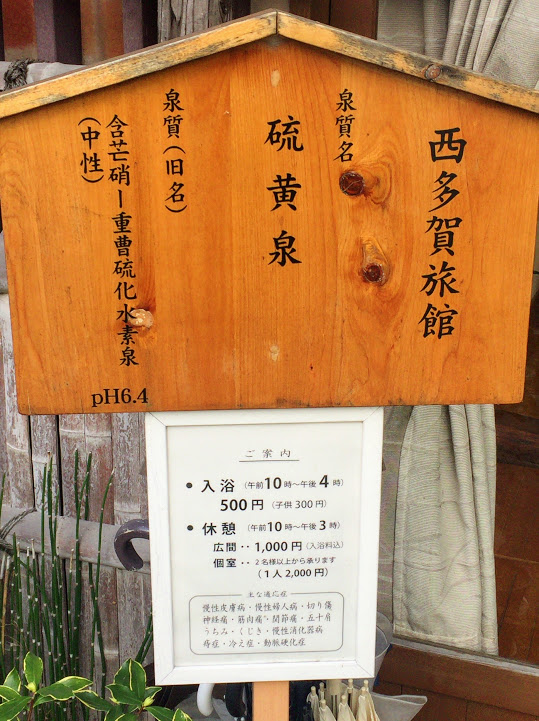 西多賀旅館
泉質名
硫黄泉
泉質（旧名）
含芒硝ー重曹硫化水素泉
（中性）
pH6.4
ご案内
● 入浴（午前10時～午後4時）
500円（子供300円）
● 休憩（午前10～午後3時）
広間‥1,000円（入浴料込）
個室‥２名様以上から承ります
（1人2,000円）
主な適応症
慢性皮膚病・慢性婦人病・切り傷
神経痛・筋肉痛・関節痛・五十肩
うちみ・くじき・慢性消化器病
痔症・冷え症・動脈硬化症